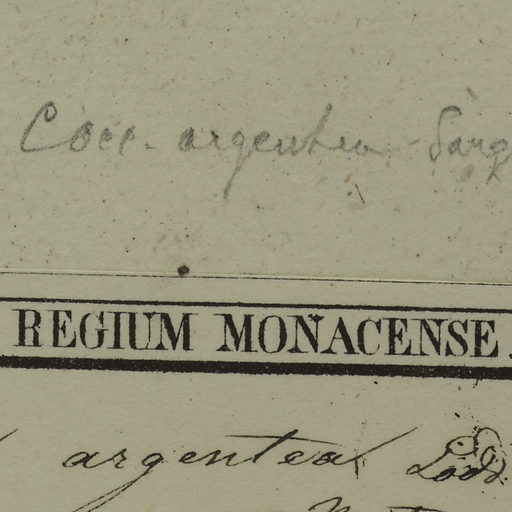 Cocc. argentea Sarg
REGIUM MONACENSE.
argentea Lodd.